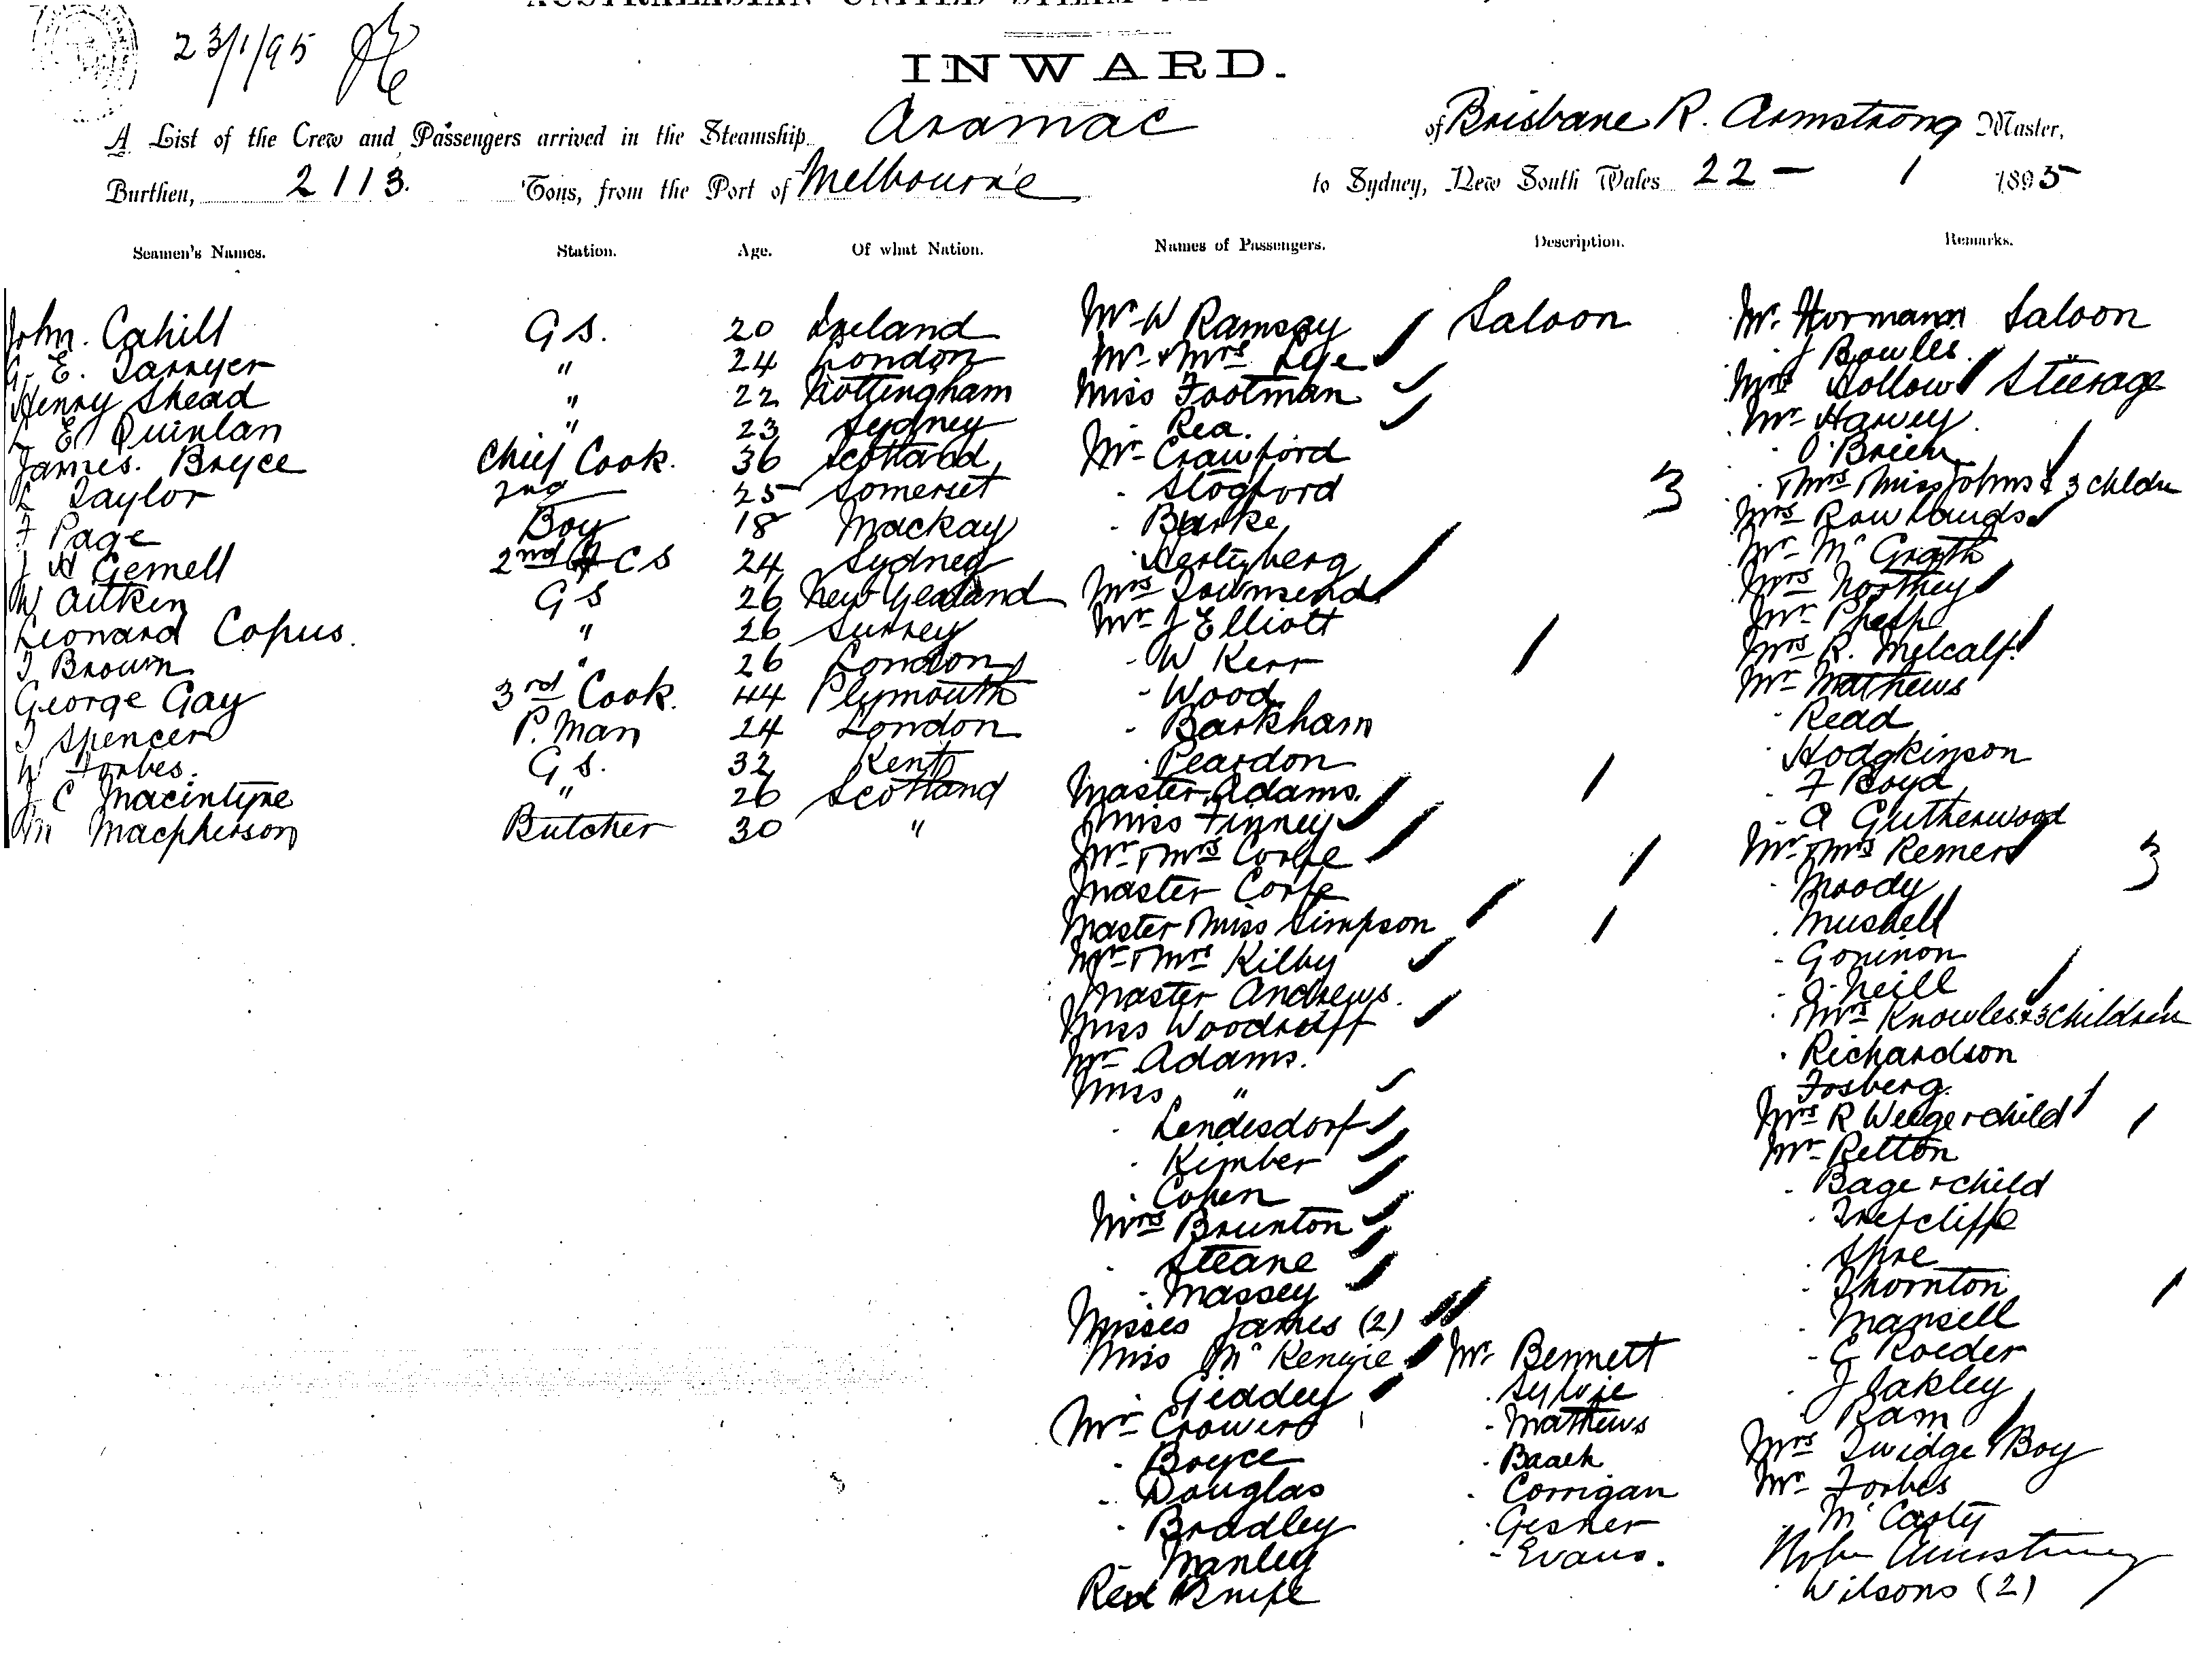 AUSTRALASIAN UNITED STEAM
23/1/95
INWARD.
A List of the Crew and Passengers arrived in the Steamship Aramac of Brisbane R. Armstrong Master,
Burthen, 2113. Tons, from the Port of Melbourne to Sydney, New South Wales 22 - 1 1895
Seamen's Names. Station. Age. Of what Nation. Names of Passengers. Description. Remarks.
John. Cahill G S. 20 Ireland
G. E. Sarryer " 24 London
Henry Shead " 22 Nottingham
E Quinlan " 23 Sydney
James. Bryce Chief Cook. 36 Scotland
Taylor 2nd 25 Somerset
F Page Boy 18 Mackay
J H Gemell 2nd C S 24 Sydney
W Aitken G S 26 New Zealand
Leonard Copus. " 26 Surrey
T Brown " 26 London
George Gay 3rd Cook. 44 Plymouth
T Spencer P. Man 24 London
W Forbes. G S. 32 Kent
J C Macintyre " 26 Scotland
M Macpherson Butcher 30 "
Mr W Ramsay Saloon
Mr & Mrs Lye
Miss Footman
- Rea.
Mr Crawford
- Slogford
- Burke
- Hertzberg
Mrs Townsend
Mr J Elliott
- W Kerr
- Wood
- Barkham
- Peardon
Master Adams.
Miss Finney
Mr & Mrs Corfe
Master Corfe
Master & Miss Simpson
Mr & Mrs Kilby
Master Andrews.
Miss Woodruff
Mr Adams.
Miss "
- Lendesdorf
- Kimber
- Cohen
Mrs Brunton
- Steane
- Massey
Misses James (2)
Miss McKenzie
- Geddey
Mr Crowers
- Boyce
- Douglas
- Bradley
- Manley
Revd Knife
3
Mr Bennett
- Sylvie
- Mathews
- Baach
- Corrigan
- Gesner
- Evans.
Mr. Hormann Saloon
- J Bowles "
Mrs Hollow Steerage
Mr Harvey
- O'Brien
- & Mrs & Miss Johns & 3 chldn
Mrs Rowlands
Mr McGrath
Mrs Northey
Mr Phelp
Mrs R. Metcalf
Mr Mathews
- Read
- Hodgkinson
- F Boyd
- A Gutherwood
Mr & Mrs Remers 3
- Moody
- Mushell
- Goninon
- O'Neill
- & Mrs Knowles & 3 children
- Richardson
Fosberg.
Mrs R Weege & child
Mr Relton
- Bage & child
- Trefcliffe
- Shre
- Thornton
- Mansell
- C Roeder
- J Oakley
- Ram
Mrs Twidge & Boy
Mr Forbes
- McCarty
Armstrong
- Wilsons (2)